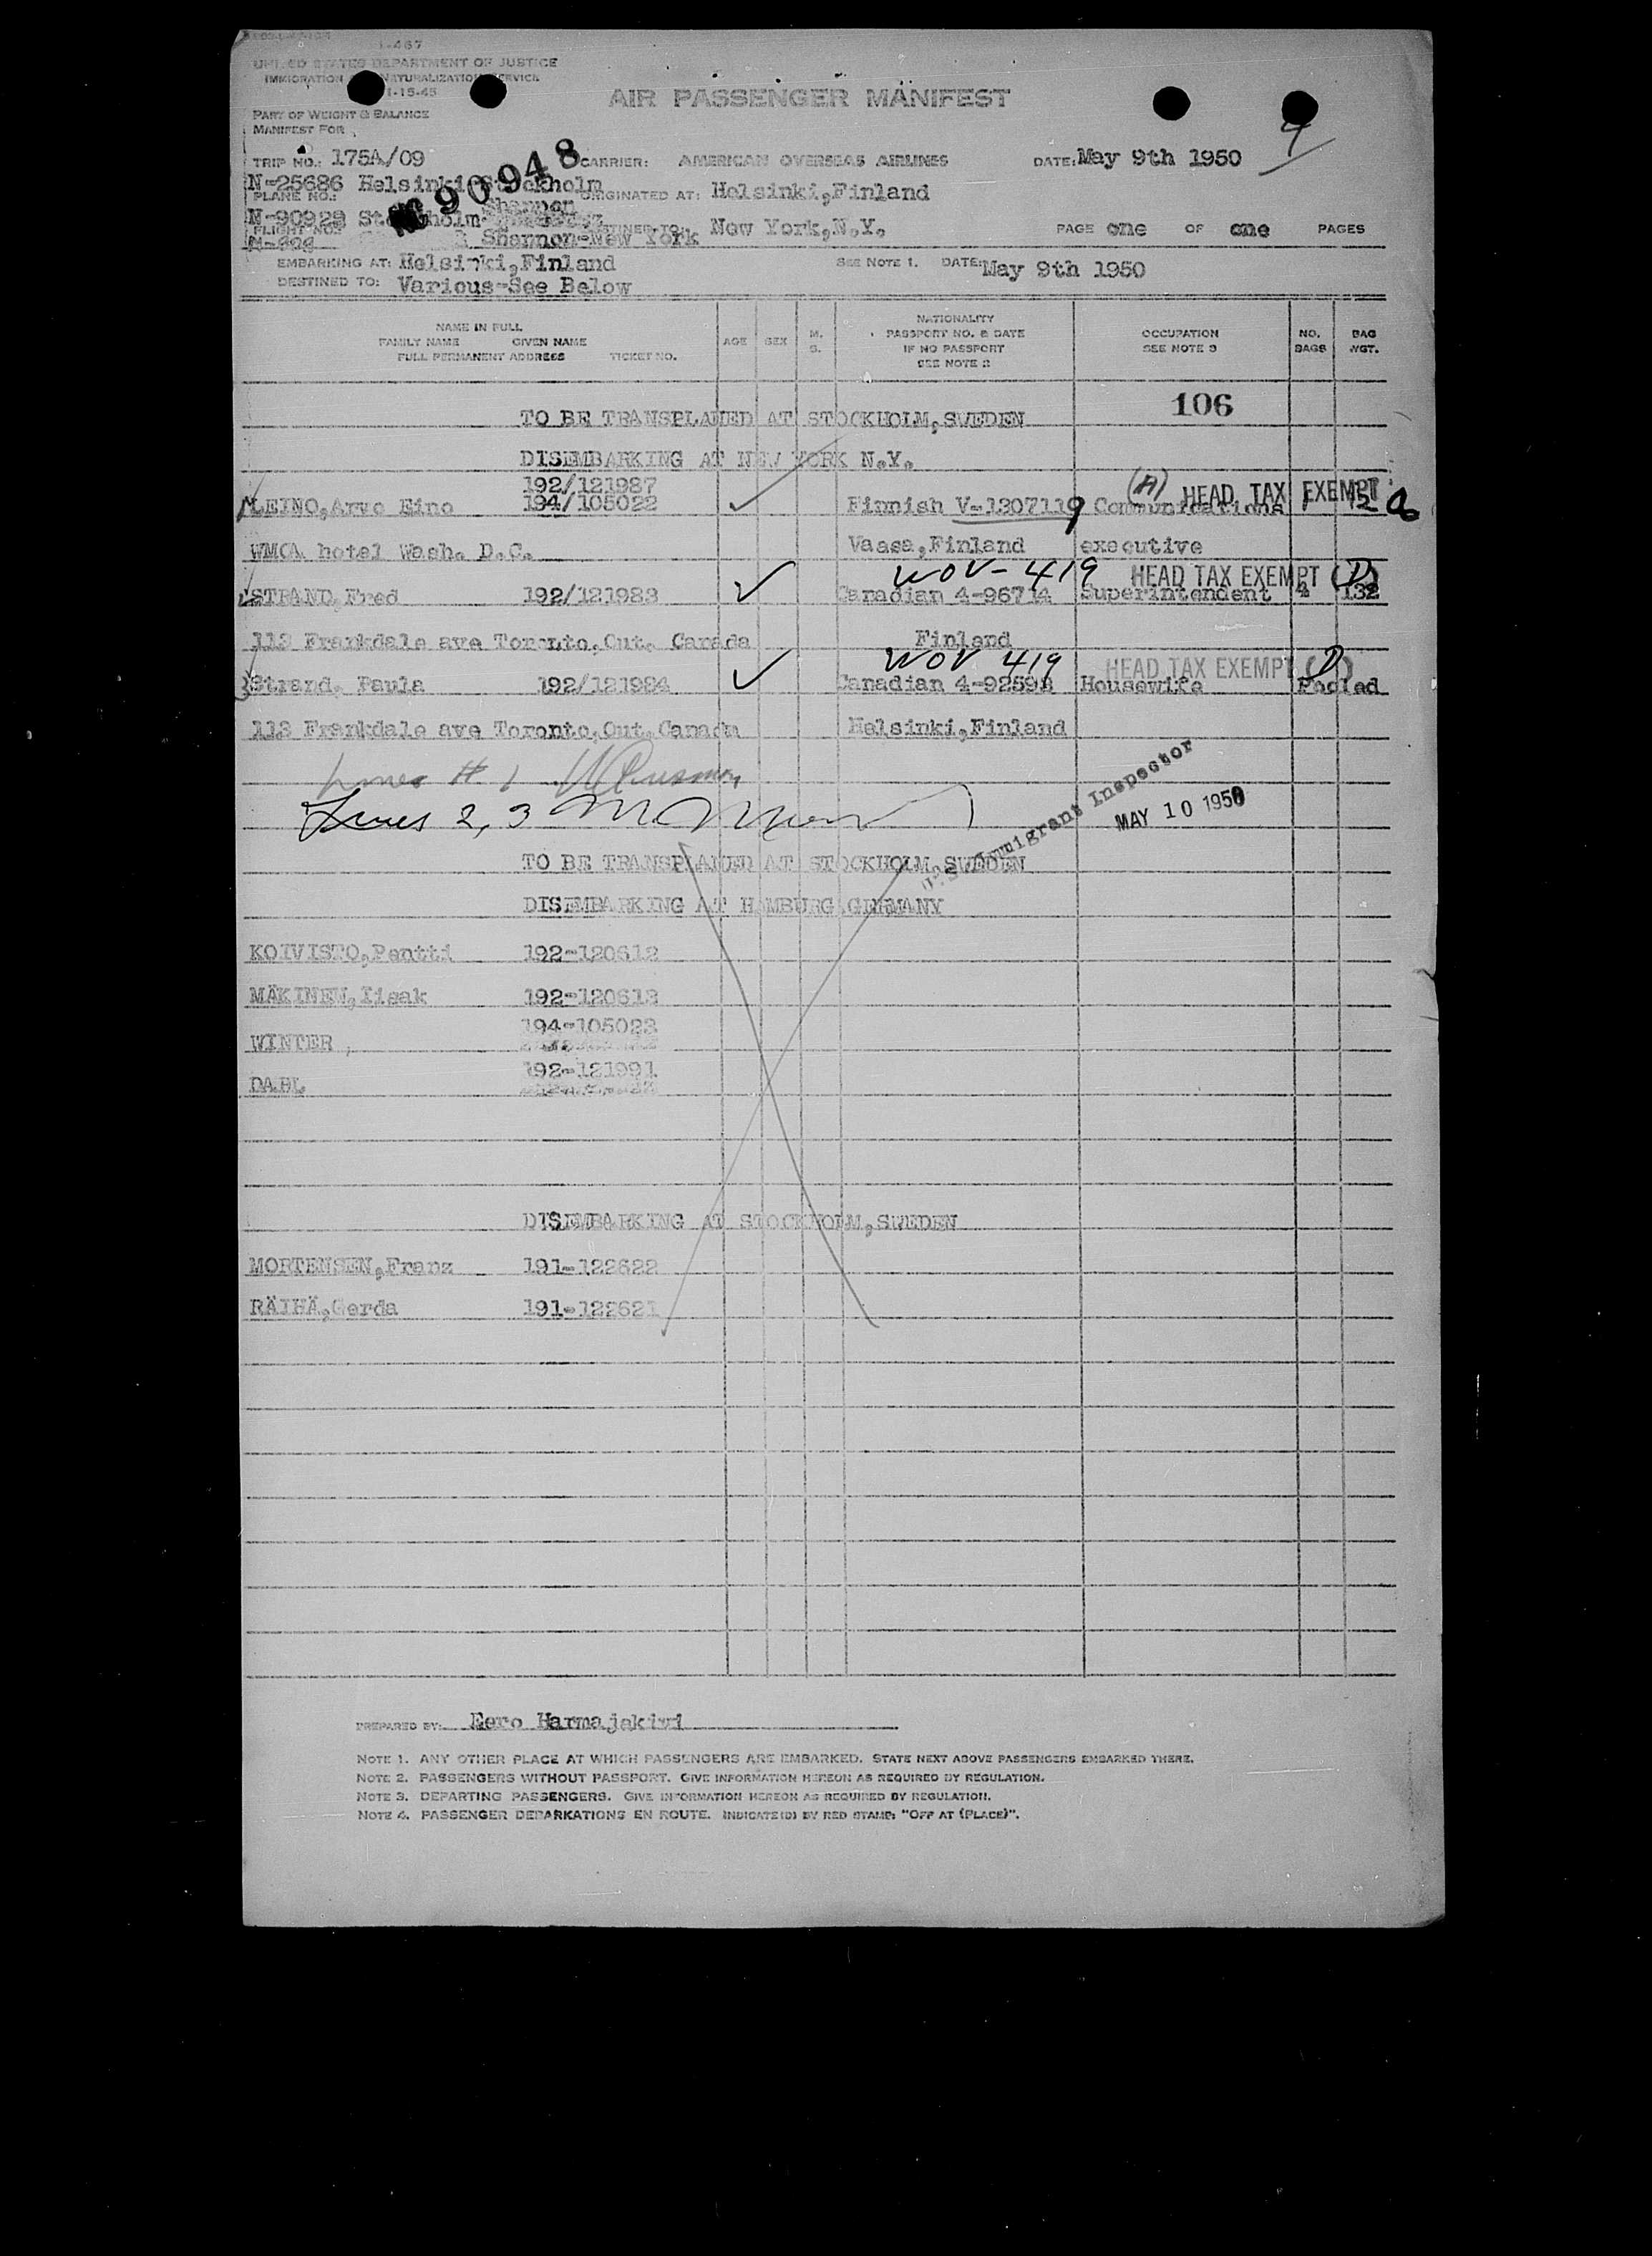 I-467
UNITED STATES DEPARTMENT OF JUSTICE
IMMIGRATION NATURALIZATION SERVICE
1-15-45
AIR PASSENGER MANIFEST
PART OF WEIGHT & BALANCE
MANIFEST FOR
9
TRIP NO.: 175A/09 CARRIER: AMERICAN OVERSEAS AIRLINES DATE: May 9th 1950
90948
N-25686 Helsinki Stockholm
PLANE NO.: Shannon ORIGINATED AT: Helsinki,Finland
N-90929 Stockholm-
FLIGHT NO. DESTINED TO: New York,N.Y. PAGE one OF one PAGES
Shannon-New York
EMBARKING AT: Helsinki,Finland SEE NOTE 1. DATE: May 9th 1950
DESTINED TO: Various-See Below
NAME IN FULL
FAMILY NAME GIVEN NAME
FULL PERMANENT ADDRESS TICKET NO.
AGE SEX M. S.
NATIONALITY
PASSPORT NO. & DATE
IF NO PASSPORT
SEE NOTE 2
OCCUPATION
SEE NOTE 3
NO. BAGS
BAG WGT.
106
TO BE TRANSPLANED AT STOCKHOLM,SWEDEN
DISEMBARKING AT NEW YORK N.Y.
192/121987
(A) HEAD TAX EXEMPT
LEINO,Arvo Eino 194/105022 Finnish V-1307119 Communications 1
WMCA hotel Wash. D.C. Vaasa,Finland executive
WOV-419 HEAD TAX EXEMPT (D)
2 STRAND,Fred 192/121983 Canadian 4-96714 Superintendent 4 132
113 Frankdale ave Toronto,Out. Canada Finland
WOV 419 HEAD TAX EXEMPT (D)
3 Strand, Paula 192/121984 Canadian 4-92598 Housewife Pooled
113 Frankdale ave Toronto,Out.Canada Helsinki,Finland
Lines # 1
Lines 2, 3
U.S. Immigrant Inspector
MAY 10 1950
TO BE TRANSPLANED AT STOCKHOLM,SWEDEN
DISEMBARKING AT HAMBURG,GERMANY
KOIVISTO,Pentti 192-120612
MÄKINEN,Iisak 192-120613
194-105023
WINTER ,
192-121991
DAHL
DISEMBARKING AT STOCKHOLM,SWEDEN
MORTENSEN,Franz 191-122622
RÄIHÄ,Gerda 191-122621
PREPARED BY: Eero Harmajakivi
NOTE 1. ANY OTHER PLACE AT WHICH PASSENGERS ARE EMBARKED. STATE NEXT ABOVE PASSENGERS EMBARKED THERE.
NOTE 2. PASSENGERS WITHOUT PASSPORT. GIVE INFORMATION HEREON AS REQUIRED BY REGULATION.
NOTE 3. DEPARTING PASSENGERS. GIVE INFORMATION HEREON AS REQUIRED BY REGULATION.
NOTE 4. PASSENGER DEBARKATIONS EN ROUTE. INDICATE(D) BY RED STAMP: "OFF AT (PLACE)".